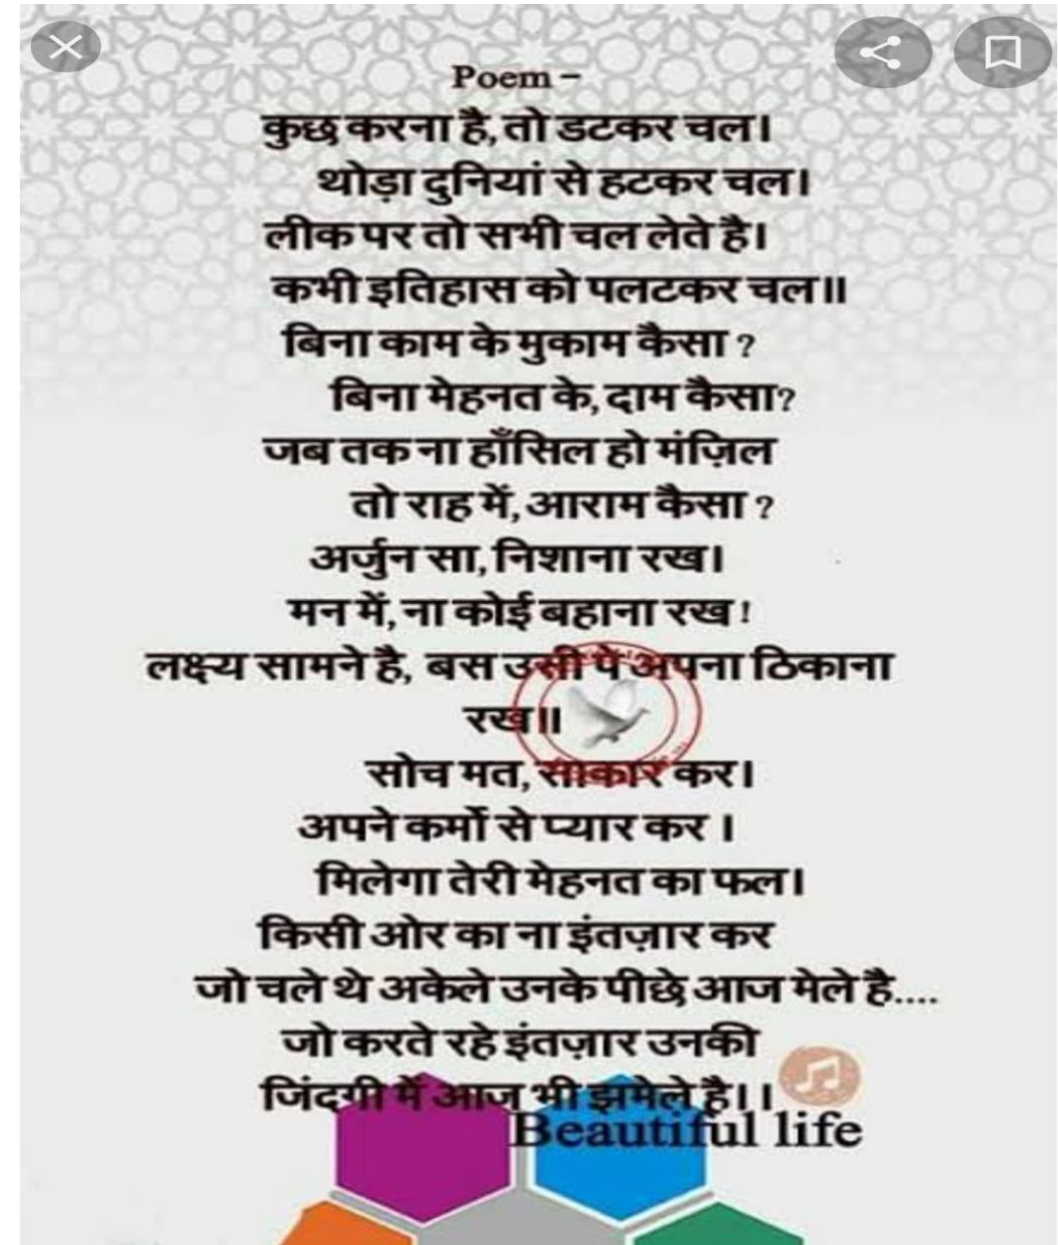 Poem –
कुछ करना है, तो डटकर चल।
थोड़ा दुनियां से हटकर चल।
लीक पर तो सभी चल लेते है।
कभी इतिहास को पलटकर चल॥
बिना काम के मुकाम कैसा ?
बिना मेहनत के, दाम कैसा?
जब तक ना हाँसिल हो मंज़िल
तो राह में, आराम कैसा ?
अर्जुन सा, निशाना रख।
मन में, ना कोई बहाना रख !
लक्ष्य सामने है, बस उसी पे अपना ठिकाना
रख॥
सोच मत, साकार कर।
अपने कर्मो से प्यार कर ।
मिलेगा तेरी मेहनत का फल।
किसी ओर का ना इंतज़ार कर
जो चले थे अकेले उनके पीछे आज मेले है....
जो करते रहे इंतज़ार उनकी
जिंदगी में आज भी झमेले है।।
Beautiful life